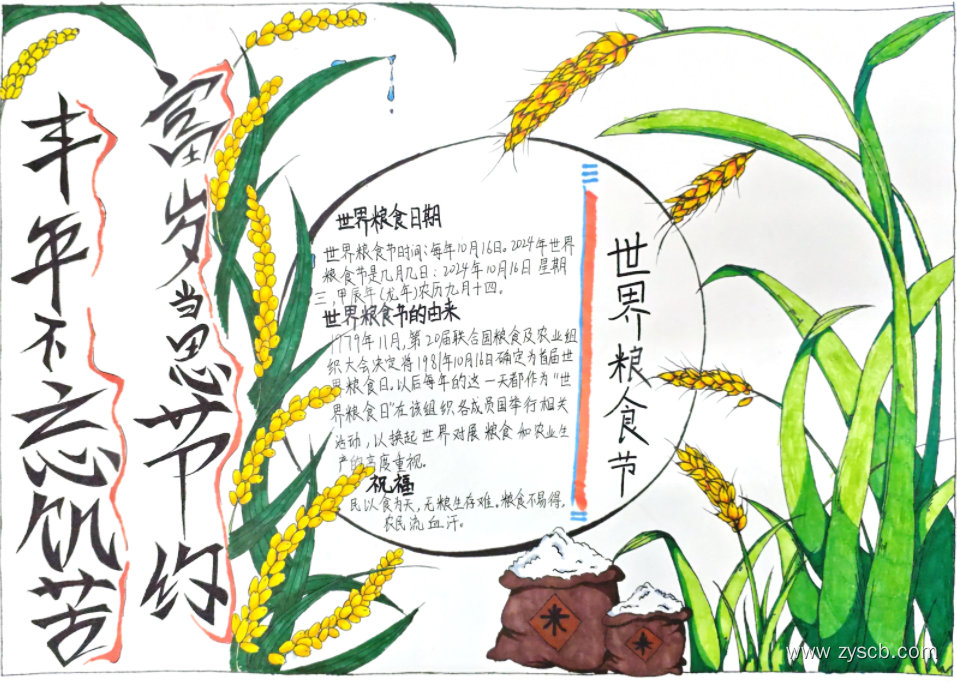 世界粮食节
富岁当思节约
丰年不忘饥苦
世界粮食日期
世界粮食节时间:每年10月16日。2024年世界
粮食节是几月几日:2024年10月16日 星期
三,甲辰年(龙年)农历九月十四。
世界粮食节的由来
1979年11月,第20届联合国粮食及农业组
织大会决定将1981年10月16日确定为首届世
界粮食日,以后每年的这一天都作为“世
界粮食日”在该组织各成员国举行相关
活动,以换起世界对展粮食和农业生
产的高度重视。
祝福
民以食为天,无粮生存难。粮食不易得,
农民流血汗。
米
米
www.zyscb.com